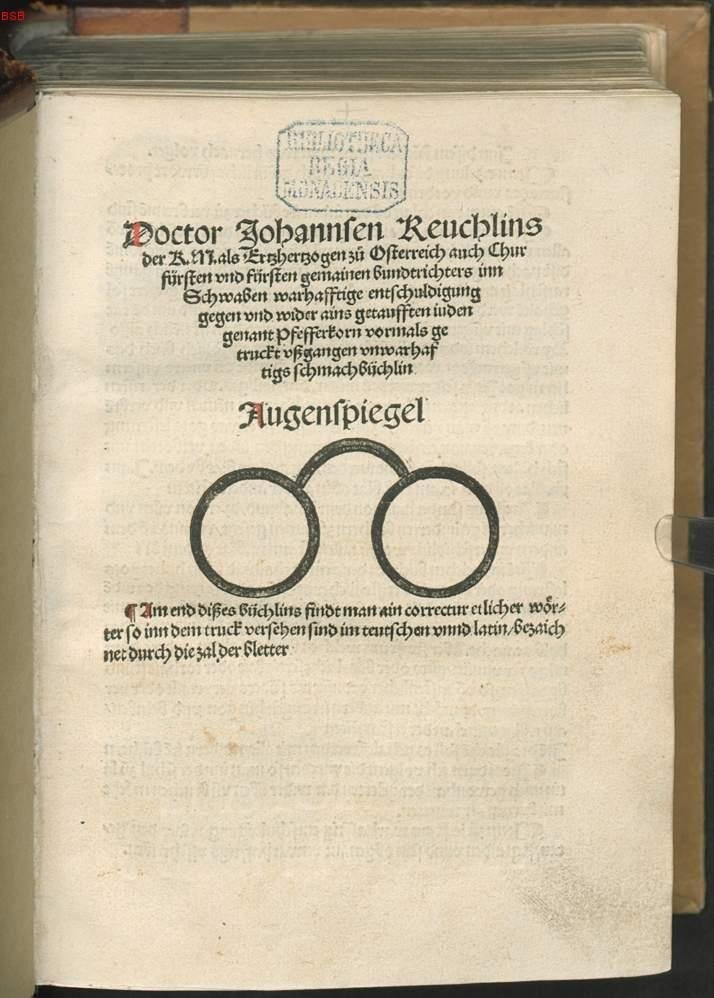 BSB
BIBLIOTHECA
REGIA
MONACENSIS
Doctor Johannsen Reuchlins
der K. M. als Ertzhertzogen zů Osterreich auch Chur
fürsten vnd fürsten gemainen bundtrichters inn
Schwaben warhafftige entschuldigung
gegen vnd wider ains getaufften iuden
genant Pfefferkorn vormals ge
truckt vßgangen vnwarhaf
tigs schmachbüchlin
Augenspiegel
¶ Am end dißes büchlins findt man ain correctur etlicher wör⸗
ter so inn dem truck versehen sind im teutschen vnnd latin/bezaich
net durch die zal der bletter